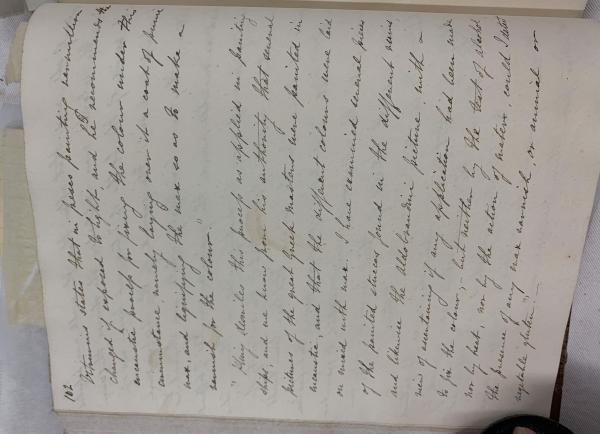 102
Vitruvius states that in fresco painting vermilion
changed if exposed to light and he recommends the
encaustic process for fixing the colour under this
circumstance namely, laying over it a coat of fine
wax, and liquifying the wax so as to make a
varnish for the colour."
"Pliny describes this process as applied in painting
ships, and we know from his authority that several
pictures of the great Greek masters were painted in
encaustic, and that the different colours were laid
on mixed with wax. I have examined several pieces
of the painted stuccos found in the different ruins,
and likewise the Aldobrandini picture, with a
view of ascertaining if any application had been made
to fix the colour; - but neither by the test of alcohol
nor by heat, nor by the action of water, could I detect
the presence of any wax varnish, or animal or
vegetable gluten."